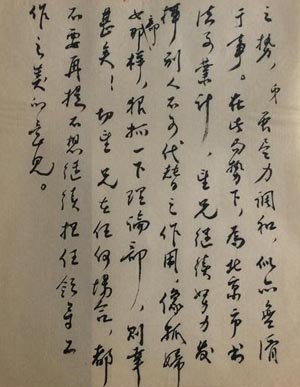 之势，弟虽尽力调和，似亦无济
于事。在此局势下，为北京市书
法事业计，望兄继续努力发
挥别人不可代替之作用，像抓妇
女部那样，狠抓一下理论部，则幸
甚矣！切望兄在任何场合，都
不要再提不想继续担任领导工
作之类的意见。